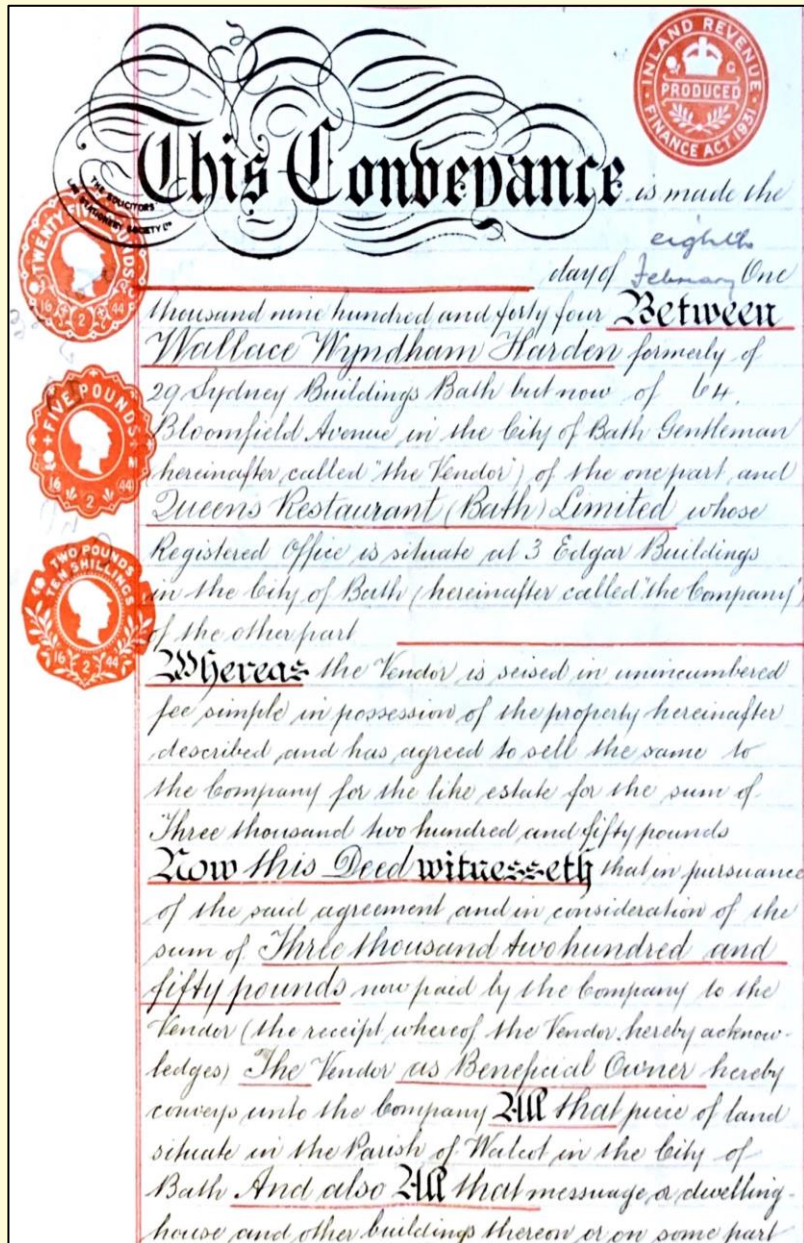 INLAND REVENUE
PRODUCED
FINANCE ACT 1931
This Conveyance is made the
THE SOLICITORS'
LAW STATIONERY SOCIETY LTD
eighth
day of February One
TWENTY FIVE POUNDS
16 2 44
thousand nine hundred and forty four Between
Wallace Wyndham Harden formerly of
29 Sydney Buildings Bath but now of 64.
FIVE POUNDS
16 2 44
Bloomfield Avenue in the City of Bath Gentleman
(hereinafter called "the Vendor") of the one part and
Queens Restaurant (Bath) Limited whose
Registered Office is situate at 3 Edgar Buildings
TWO POUNDS
TEN SHILLINGS
16 2 44
in the City of Bath (hereinafter called "the Company")
of the other part
Whereas the Vendor is seised in unincumbered
fee simple in possession of the property hereinafter
described and has agreed to sell the same to
the Company for the like estate for the sum of
Three thousand two hundred and fifty pounds
Now this Deed witnesseth that in pursuance
of the said agreement and in consideration of the
sum of Three thousand two hundred and
fifty pounds now paid by the Company to the
Vendor (the receipt whereof the Vendor hereby acknow-
ledges) The Vendor as Beneficial Owner hereby
conveys unto the Company All that piece of land
situate in the Parish of Walcot in the City of
Bath And also All that messuage or dwelling-
house and other buildings thereon or on some part